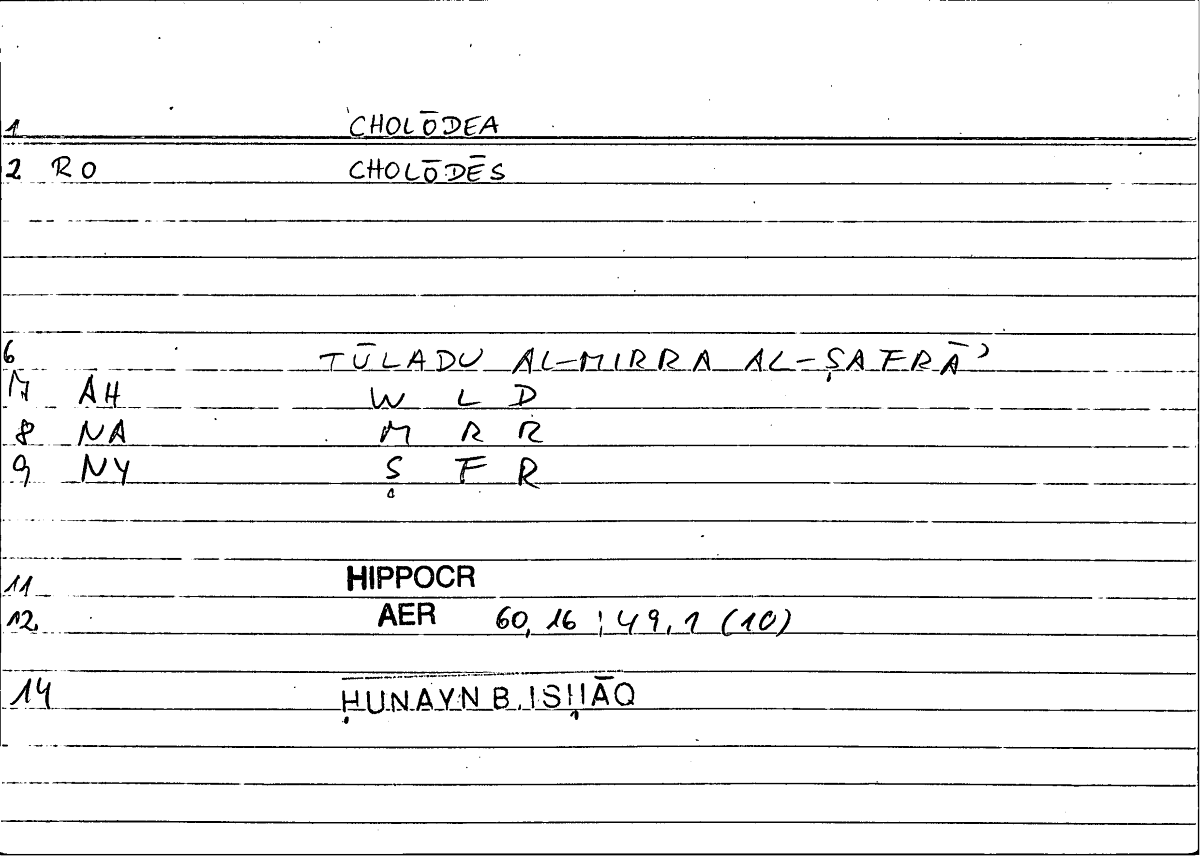 1 CHOLŌDEA
2 RO CHOLŌDĒS
6 TŪLADU AL-MIRRA AL-ṢAFRĀʾ
7 AH W L D
8 NA M R R
9 NY Ṣ F R
11 HIPPOCR
12 AER 60, 16 ; 49, 1 (10)
14 ḤUNAYN B. ISḤĀQ